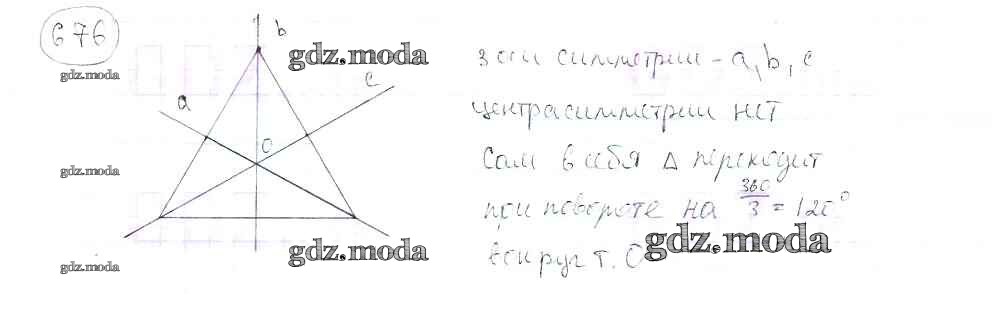 676
b
gdz.moda
gdz.moda
a
c
O
3 оси симметрии - a, b, c
центра симметрии нет
gdz.moda
Сам в себя △ переходит
при повороте на 360/3 = 120°
вокруг т. O
gdz.moda
gdz.moda
gdz.moda